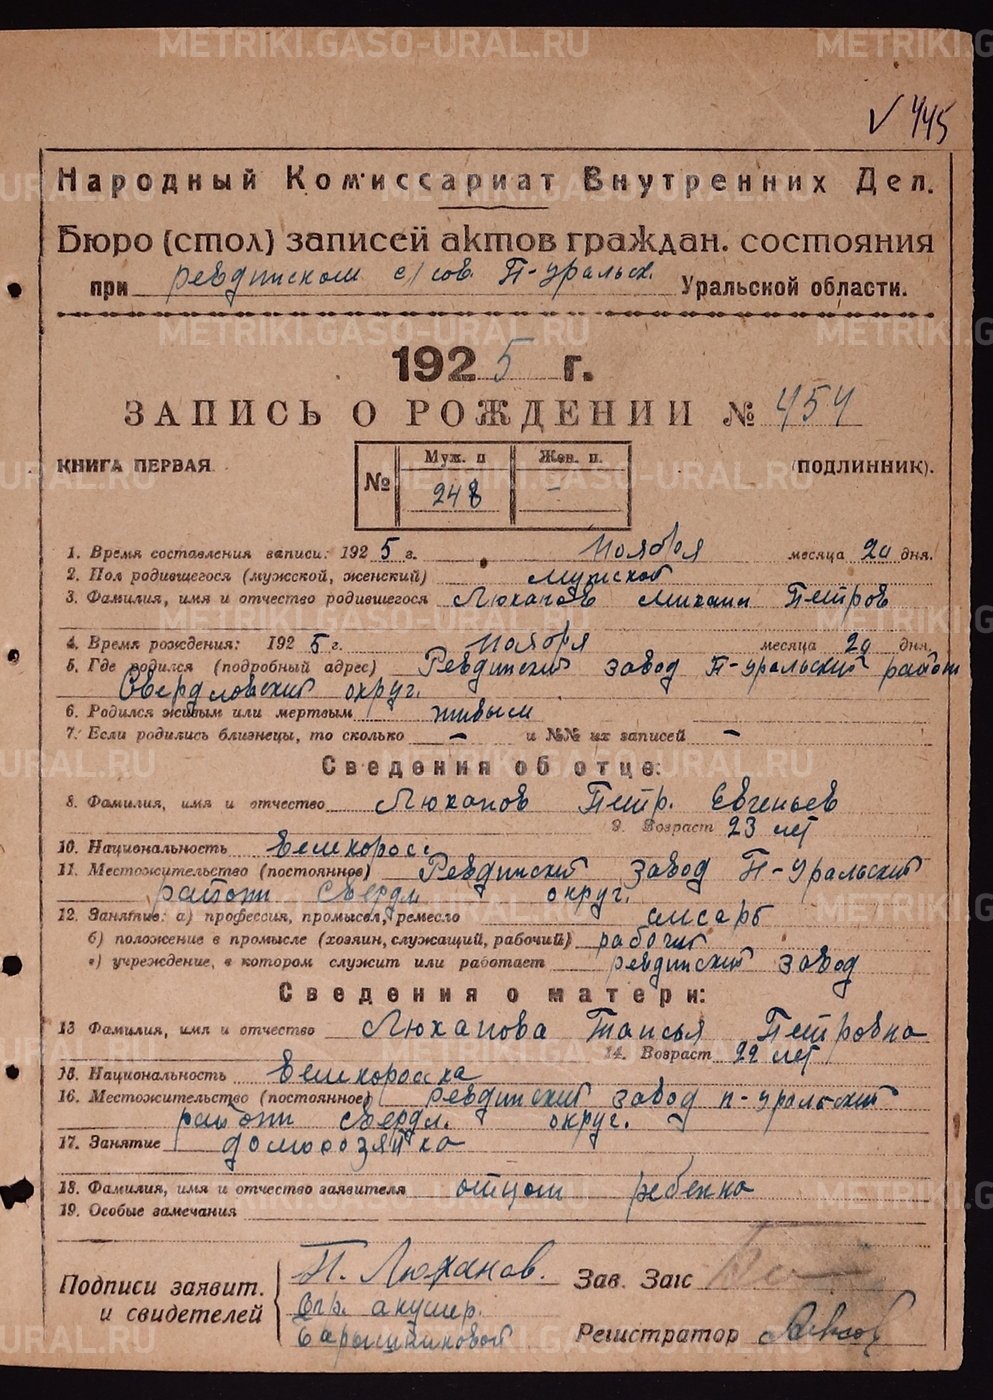 METRIKI.GASO-URAL.RU
√ 445
Народный Комиссариат Внутренних Дел.
Бюро (стол) записей актов граждан. состояния
при Ревдинском с/сов. П-Уральск. Уральской области.
1925 г.
ЗАПИСЬ О РОЖДЕНИИ № 454
КНИГА ПЕРВАЯ (ПОДЛИННИК).
№ Муж. п Жен. п.
248 –
1. Время составления записи: 1925 г. Ноября месяца 20 дня.
2. Пол родившегося (мужской, женский) Мужской
3. Фамилия, имя и отчество родившегося Люханов Михаил Петров
4. Время рождения: 1925 г. Ноября месяца 20 дня.
5. Где родился (подробный адрес) Ревдинский завод П-Уральский район
Свердловский округ.
6. Родился живым или мертвым живым
7. Если родились близнецы, то сколько – и №№ их записей –
Сведения об отце:
8. Фамилия, имя и отчество Люханов Петр. Евгеньев
9. Возраст 23 лет
10. Национальность Великоросс
11. Местожительство (постоянное) Ревдинский завод П-Уральский
район Свердл округ.
12. Занятие: а) профессия, промысел, ремесло слесарь
б) положение в промысле (хозяин, служащий, рабочий) рабочий
в) учреждение, в котором служит или работает ревдинский завод
Сведения о матери:
13 Фамилия, имя и отчество Люханова Таисья Петровна
14. Возраст 22 лет
15. Национальность Великоросска
16. Местожительство (постоянное) ревдинский завод п-уральский
район Свердл. округ.
17. Занятие домохозяйка
18. Фамилия, имя и отчество заявителя отцом ребенка
19. Особые замечания
Подписи заявит. и свидетелей П. Люханов. Зав. Загс
акушер.
Барышниковой Регистратор